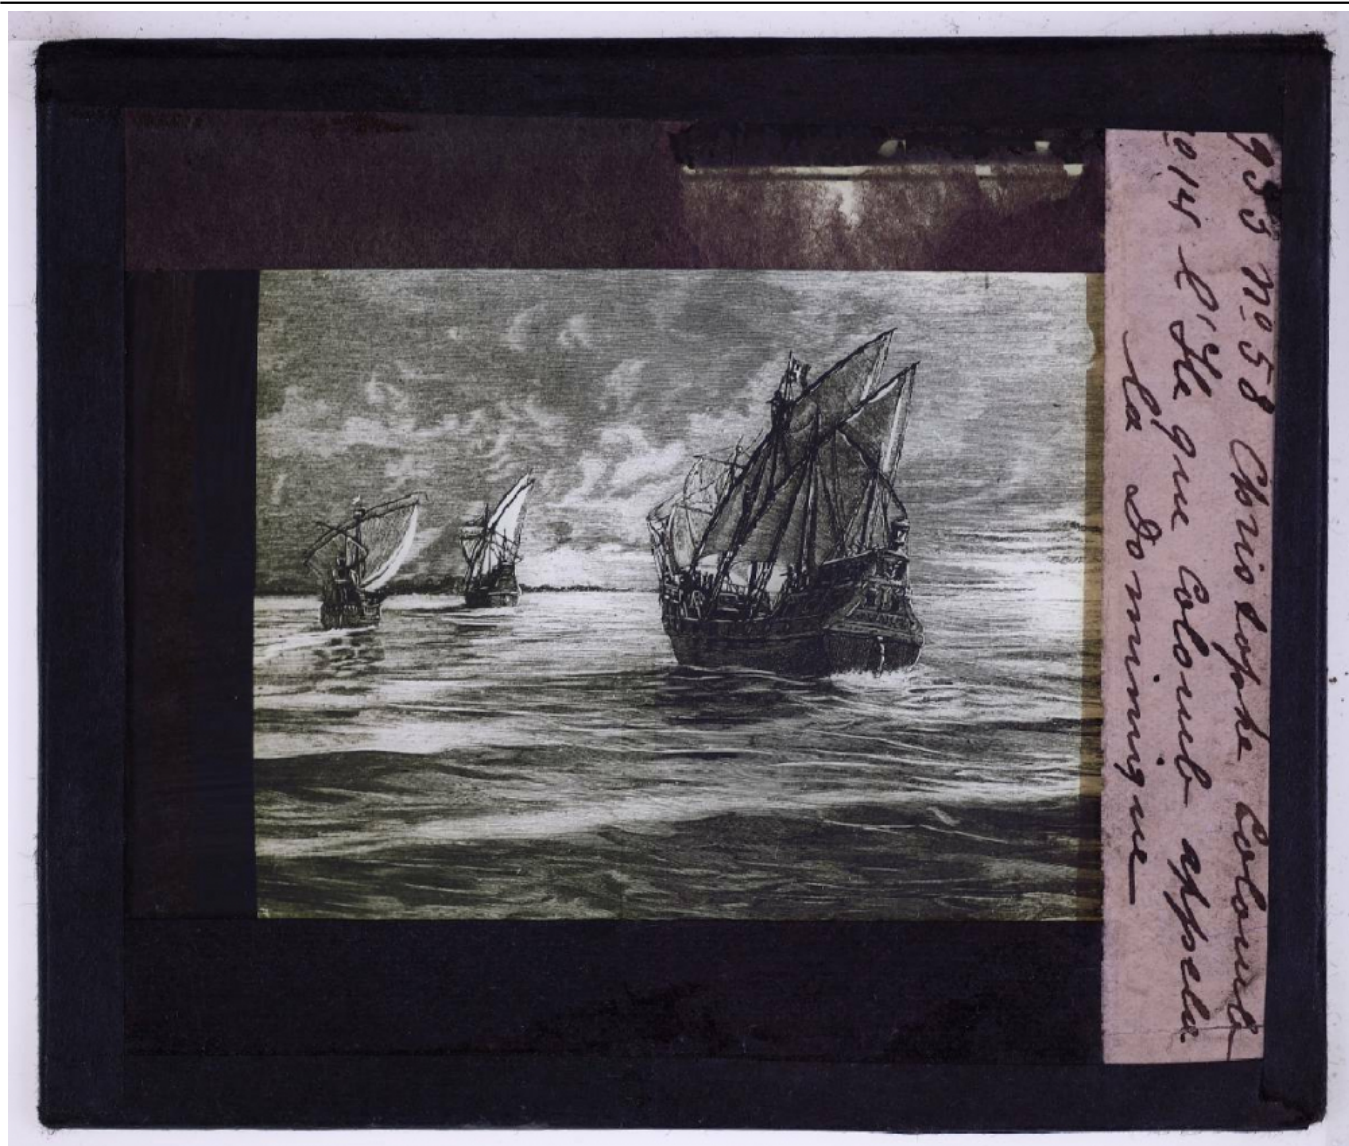 953 nº 58 Christophe Colomb
voir l'Ile que Colomb appela
la Dominique